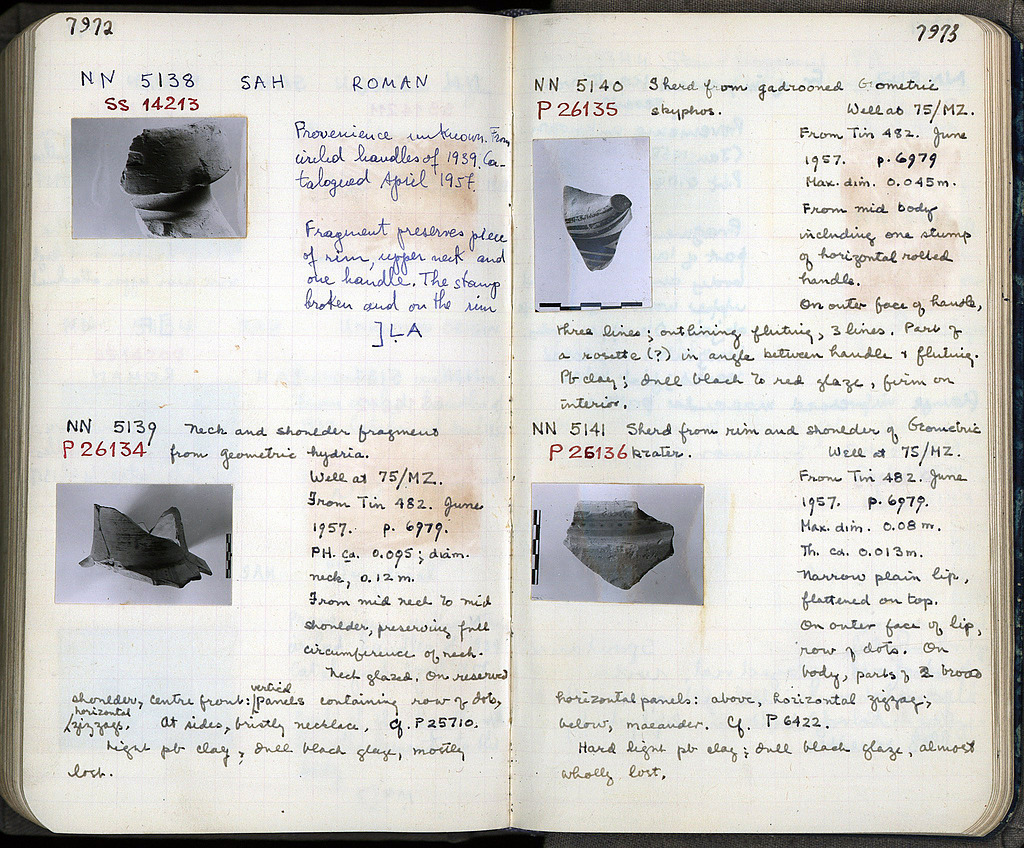 7972
NN 5138 SAH ROMAN
SS 14213
Provenience unknown. From
circled handles of 1939. Ca-
talogued April 1957.
Fragment preserves piece
of rim, upper neck and
one handle. The stamp
broken and on the rim
]LA
NN 5139 Neck and shoulder fragment
P 26134 from geometric hydria.
Well at 75/MZ.
From Tin 482. June
1957. p. 6979.
PH. ca. 0.095; diam.
neck, 0.12 m.
From mid neck to mid
shoulder, preserving full
circumference of neck.
Neck glazed. On reserved
shoulder, centre front: vertical panels containing row of dots,
horizontal zigzags. At sides, bristly necklace. Cf. P 25710.
Light pb clay; dull black glaze, mostly
lost.
7973
NN 5140 Sherd from gadrooned Geometric
P 26135 skyphos. Well at 75/MZ.
From Tin 482. June
1957. p. 6979
Max. dim. 0.045 m.
From mid body
including one stump
of horizontal rolled
handle.
On outer face of handle,
three lines; outlining fluting, 3 lines. Part of
a rosette (?) in angle between handle + fluting.
Pb clay; dull black to red glaze, firm on
interior.
NN 5141 Sherd from rim and shoulder of Geometric
P 26136 krater. Well at 75/MZ.
From Tin 482. June
1957. p. 6979.
Max. dim. 0.08 m.
Th. ca. 0.013 m.
Narrow plain lip,
flattened on top.
On outer face of lip,
row of dots. On
body, parts of 2 broad
horizontal panels: above, horizontal zigzag;
below, maeander. Cf. P 6422.
Hard light pb clay; dull black glaze, almost
wholly lost.